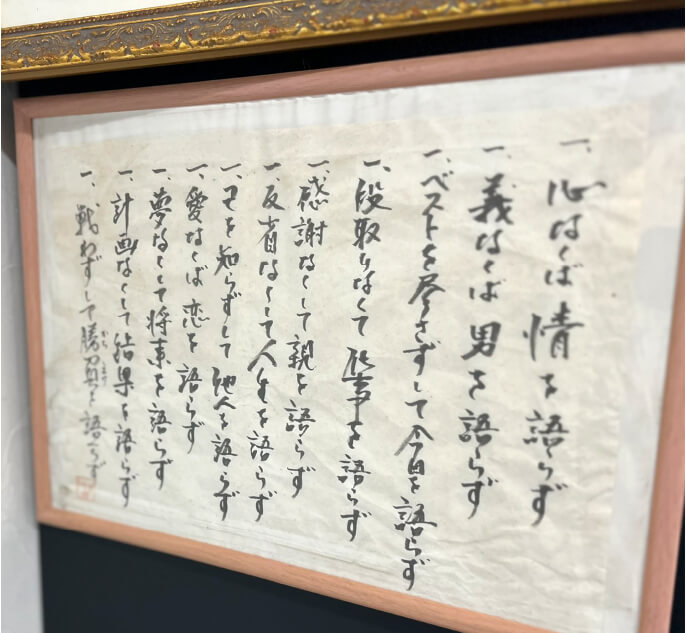 一、心なくば情を語らず
一、義なくば男を語らず
一、ベストを尽さずして今日を語らず
一、段取りなくて仕事を語らず
一、感謝なくして親を語らず
一、反省なくして人生を語らず
一、己を知らずして他人を語らず
一、愛なくば恋を語らず
一、夢なくして将来を語らず
一、計画なくして結果を語らず
一、戦わずして勝負を語らず